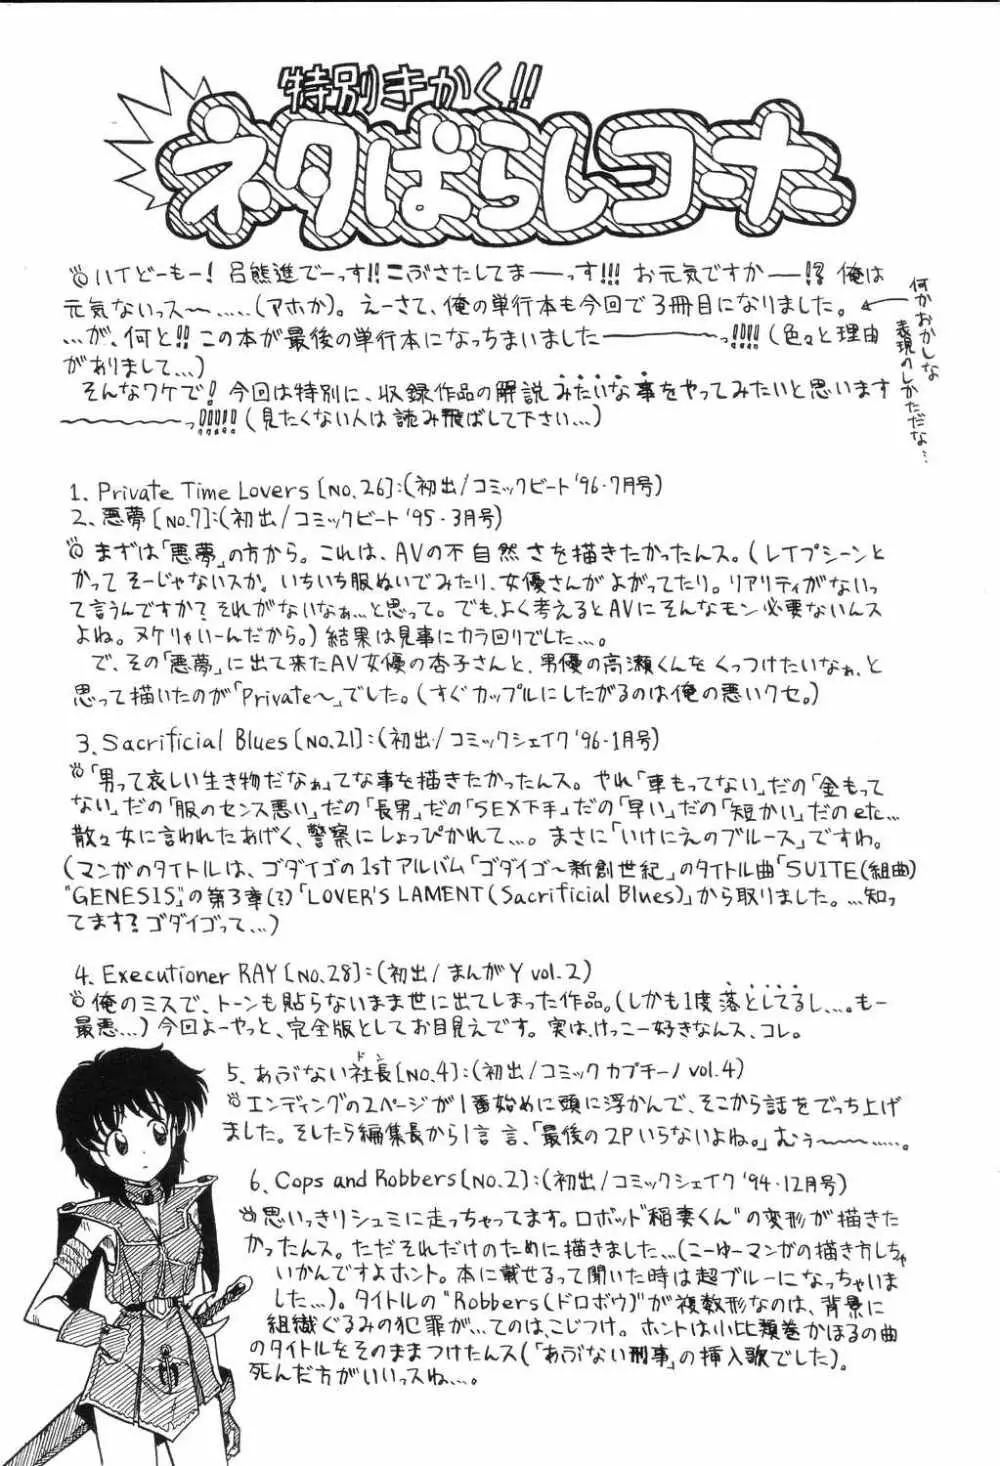 特別きかく!!
ネタばらしコーナー
ハイどーもー! 呂熊進でーっす!! ごぶさたしてまーーっす!!! お元気ですかー—!? 俺は
元気ないっス〜……(アホか)。えーさて、俺の単行本も今回で3冊目になりました。
…が、何と!! この本が最後の単行本になっちまいました————っ!!!! (色々と理由
がありまして…)
そんなワケで! 今回は特別に、収録作品の解説みたいな事をやってみたいと思います
〜————っ!!!!! (見たくない人は読み飛ばして下さい…)
何かおかしな
表現のしかただな…
1. Private Time Lovers [NO.26]:(初出/コミックビート '96・7月号)
2. 悪夢 [NO.7]:(初出/コミックビート '95・3月号)
まずは「悪夢」の方から。これは、AVの不自然さを描きたかったんス。(レイプシーンと
かってそーじゃないスか。いちいち服ぬいでみたり、女優さんがよがってたり。リアリティがないっ
て言うんですか? それがないなぁ…と思って。でも、よく考えるとAVにそんなモン必要ないんス
よね。ヌケりゃいーんだから。) 結果は見事にカラ回りでした…。
で、その「悪夢」に出て来たAV女優の杏子さんと、男優の高瀬くんをくっつけたいなぁ、と
思って描いたのが「Private〜」でした。(すぐカップルにしたがるのは俺の悪いクセ。)
3. Sacrificial Blues [NO.21]:(初出/コミックシェイク '96・1月号)
「男って哀しい生き物だなぁ」てな事を描きたかったんス。やれ「車もってない」だの「金もって
ない」だの「服のセンス悪い」だの「長男」だの「SEX下手」だの「早い」だの「短かい」だの etc…
散々女に言われたあげく、警察にしょっぴかれて…。まさに「いけにえのブルース」ですわ。
(マンガのタイトルは、ゴダイゴの1stアルバム「ゴダイゴ〜新創世紀」のタイトル曲「SUITE(組曲)
"GENESIS"」の第3章(?)「LOVER'S LAMENT (Sacrificial Blues)」から取りました。…知っ
てます? ゴダイゴって…)
4. Executioner RAY [NO.28]:(初出/まんがY vol.2)
俺のミスで、トーンも貼らないまま世に出てしまった作品。(しかも1度落としてるし…。もー
最悪…) 今回よーやっと、完全版としてお目見えです。実は、けっこー好きなんス、コレ。
5. あぶない社長(ドン) [NO.4]:(初出/コミックカプチーノ vol.4)
エンディングの2ページが1番始めに頭に浮かんで、そこから話をでっち上げ
ました。そしたら編集長から1言言、「最後の2Pいらないよね。」むぅ〜——……。
6. Cops and Robbers [NO.2]:(初出/コミックシェイク '94・12月号)
思いっきりシュミに走っちゃってます。ロボッド"稲妻くん"の変形が描きた
かったんス。ただそれだけのために描きました…(こーゆーマンガの描き方しちゃ
いかんですよホント。本に載せるって聞いた時は超ブルーになっちゃいま
した…)。タイトルの"Robbers (ドロボウ)"が複数形なのは、背景に
組織ぐるみの犯罪が…てのは、こじつけ。ホントは小比類巻かほるの曲
のタイトルをそのままつけたんス(「あぶない刑事」の挿入歌でした)。
死んだ方がいいっスね…。